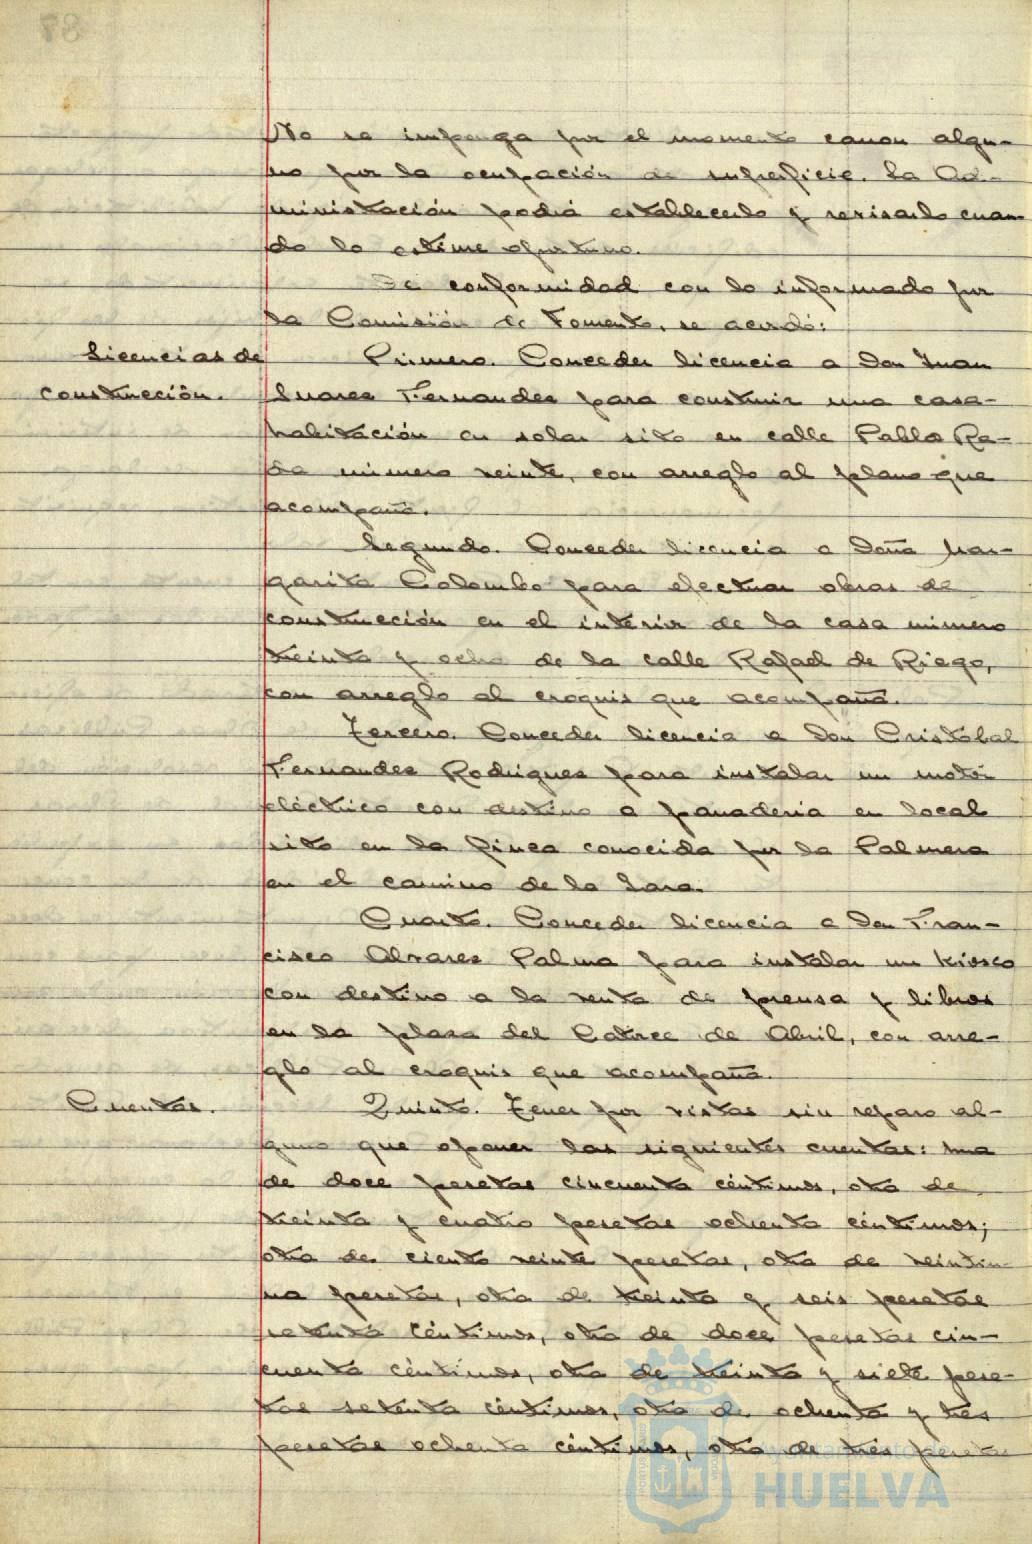 No se imponga por el momento canon algu-
no por la ocupación de superficie. La Ad-
ministración podrá establecerlo y revisarlo cuan-
do lo estime oportuno.
De conformidad con lo informado por
la Comisión de Fomento, se acordó:
Licencias de
construcción.
Primero. Conceder licencia a Don Juan
Suarez Fernandez para construir una casa-
habitación en solar sito en calle Pablo Ra-
da número veinte, con arreglo al plano que
acompaña.
Segundo. Conceder licencia a Doña Mar-
garita Colombo para efectuar obras de
construcción en el interior de la casa número
treinta y ocho de la calle Rafael de Riego,
con arreglo al croquis que acompaña.
Tercero. Conceder licencia a Don Cristobal
Fernandez Rodriguez para instalar un motor
eléctrico con destino a panadería en local
sito en la finca conocida por la Palmera
en el camino de la
Cuarto. Conceder licencia a Don Fran-
cisco Alvarez Palma para instalar un kiosco
con destino a la venta de prensa y libros
en la plaza del Catorce de Abril, con arre-
glo al croquis que acompaña.
Cuentas.
Quinto. Tener por vistas sin reparo al-
guno que oponer las siguientes cuentas: una
de doce pesetas cincuenta céntimos, otra de
treinta y cuatro pesetas ochenta céntimos;
otra de ciento veinte pesetas, otra de veintiu-
na pesetas, otra de treinta y seis pesetas
setenta céntimos, otra de doce pesetas cin-
cuenta céntimos, otra de treinta y siete pese-
tas setenta céntimos, otra de ochenta y tres
pesetas ochenta céntimos, otra de tres pesetas
Ayuntamiento de
HUELVA